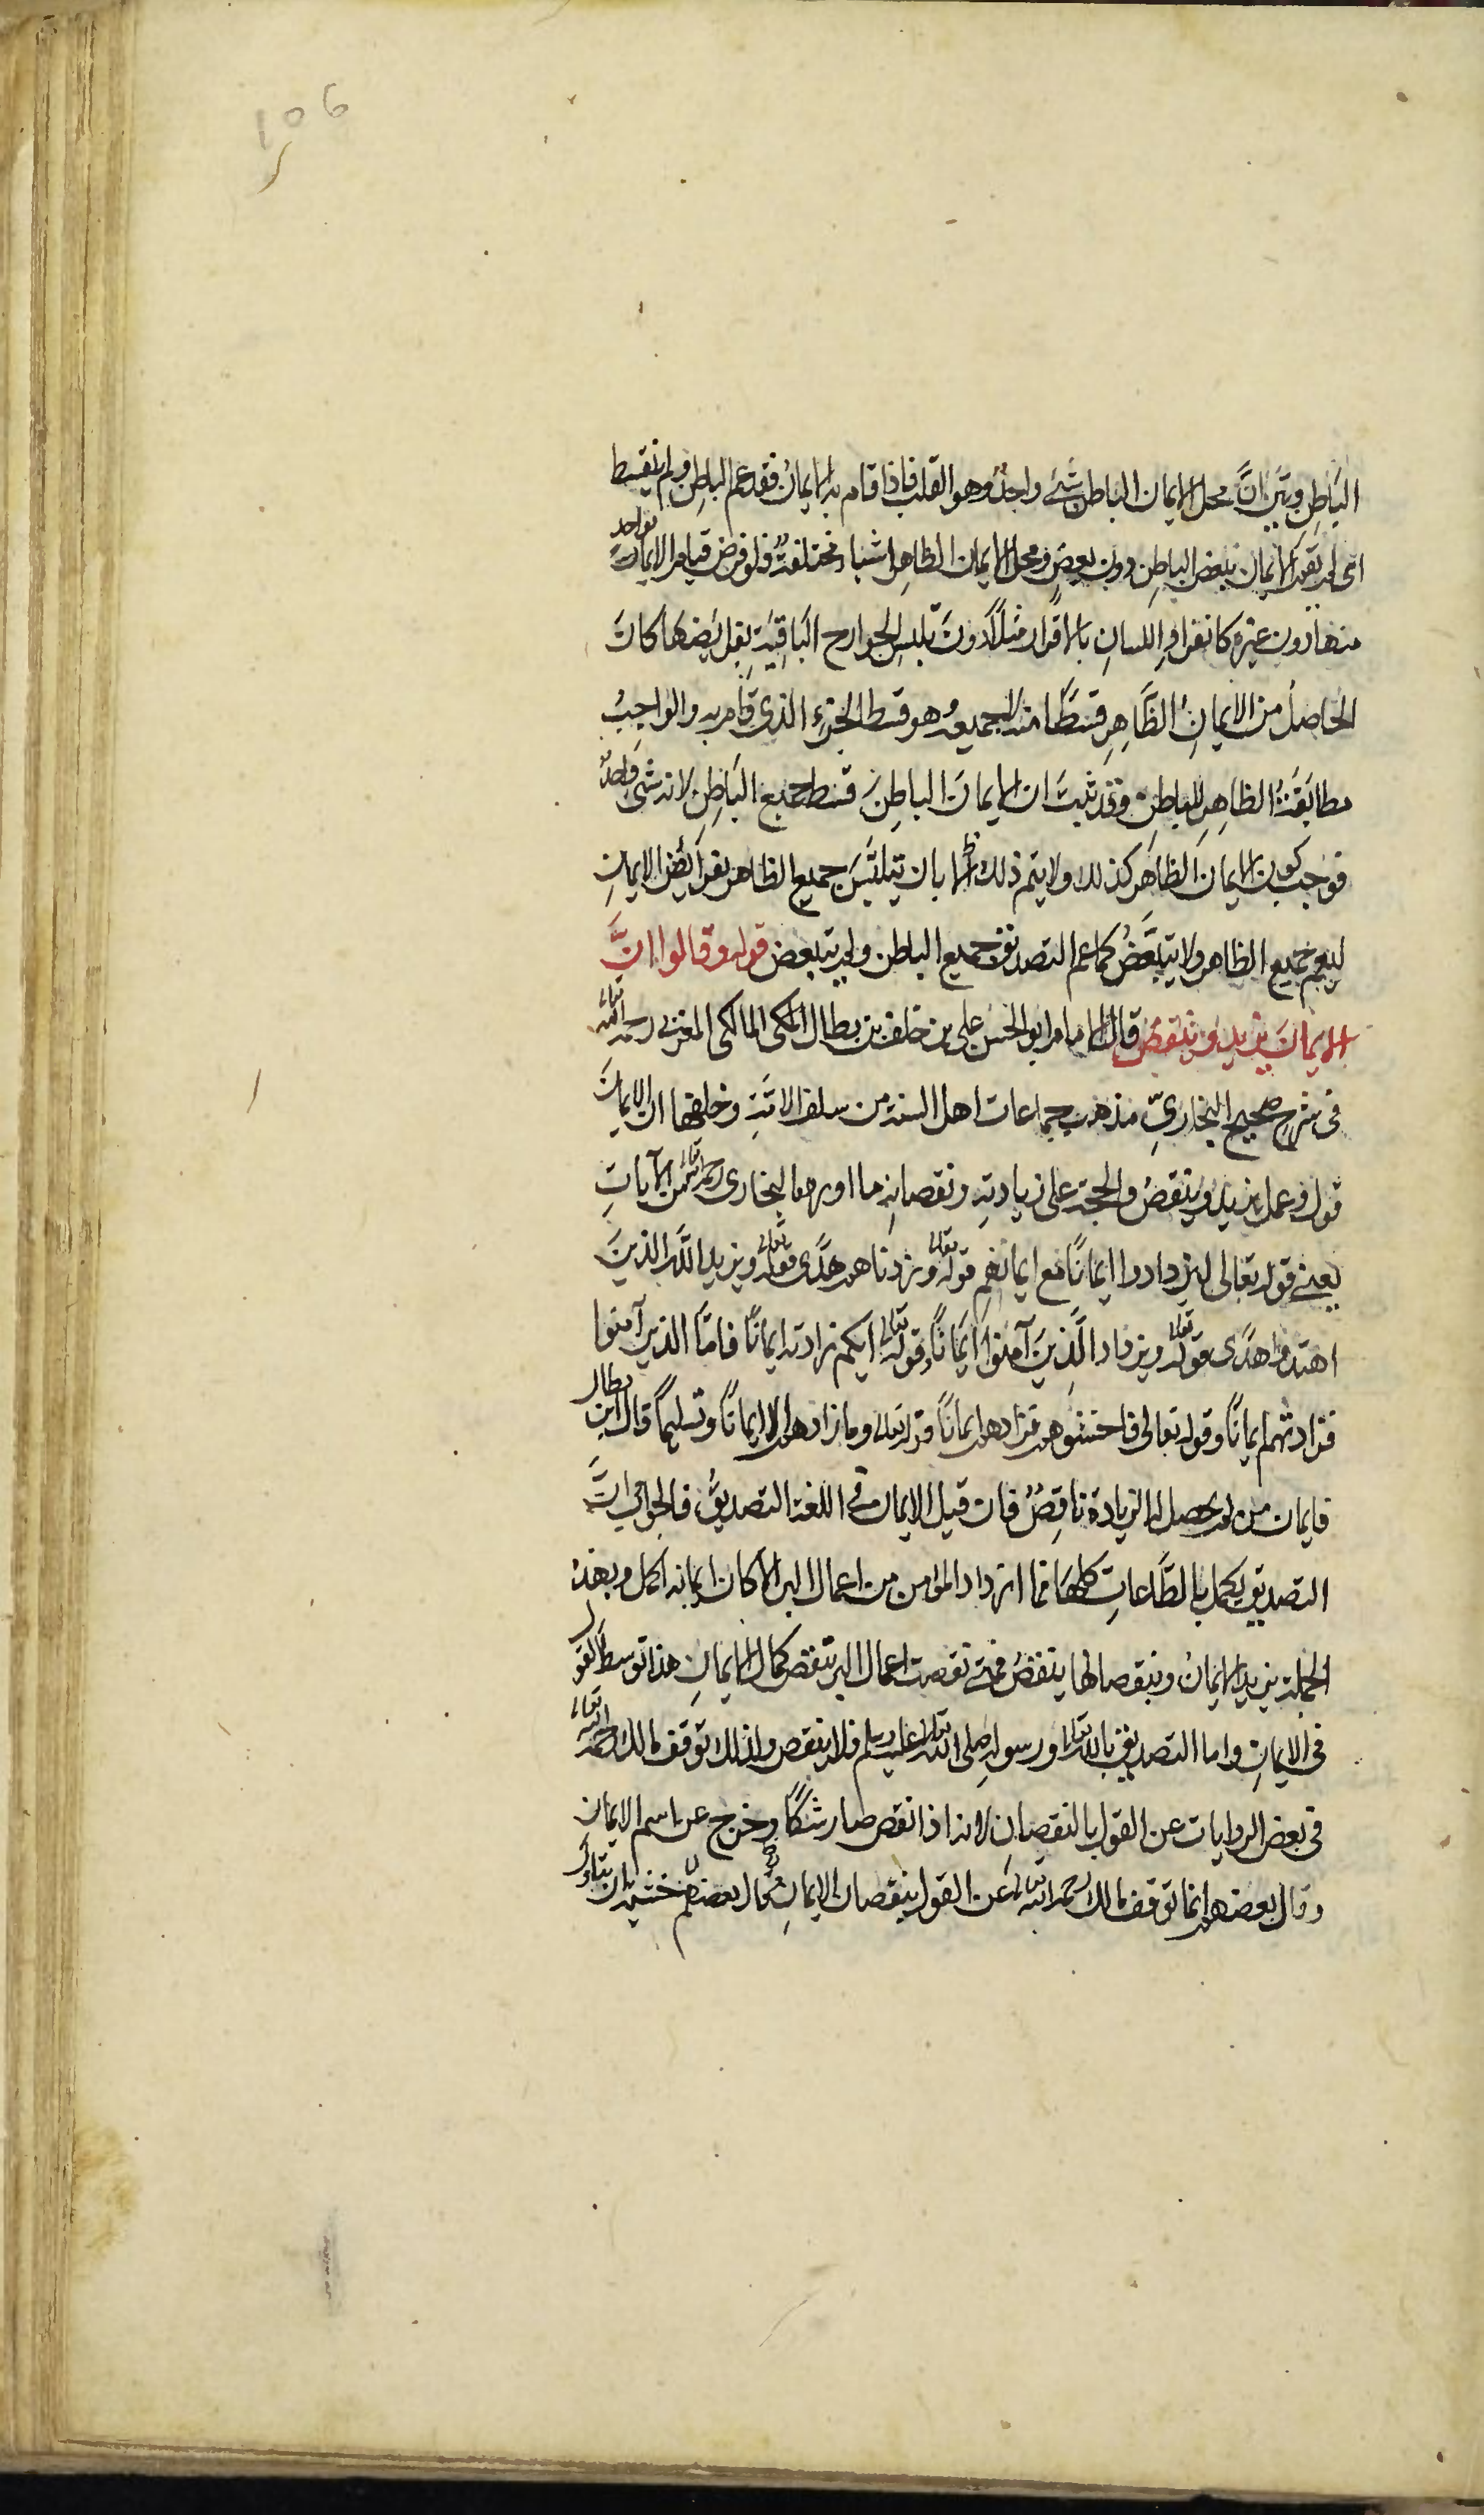 106
الباطِنِ وبَيَّنَ انَّ محل الايمان الباطن شَئٌ واحِدٌ وهو القلب فاذا قام به الايمانُ فقد عم الباطِن ولم يتقسط
اى لم يقم الايمان ببعض الباطِن دون بعضٍ ومحل الايمان الظاهِر اشياء مختلفةٌ فلو فرض قيام الايمان بواحد
منها دون غيره كانفرادِ اللسانِ بالاقرارِ مثلاً دونَ تلبسِ الجوارح الباقِيَةِ بفرايضها كانَ
الحاصلُ من الايمانِ الظَّاهِرِ قسطًا منه لا جميعهُ وهو قسط الجزءِ الذى قام به والواجِبُ
مطابَقَةُ الظاهِرِ للباطِنِ وقد ثبتَ ان الايمانَ الباطِنَ قسط جميع الباطِنِ لانه شئ واحدٌ
فوجب كون الايمان الظاهر كذلك ولا يتم ذلك الا بان تيلبَّسَ جميع الظاهر بفرائض الايمانِ
ليعم جميع الظاهر ولا يتبعَّضُ كما عم التصديق جميع الباطن ولم يتبعض قوله وقالوا انَّ
الايمانَ يزيد وينقصُ قال الامام ابو الحسن على بن خلف بن بطال المكى المالكى المغربى رحمه الله تعالى
فى شرح صحيح البخاريِّ مذهب جماعات اهل السنة من سلف الامَّةِ وخلفها ان الايمانَ
قول وعمل يزيدُ وينقصُ والحجة على زيادتِهِ ونقصانِهِ ما اورده البخارى رحمه الله تعالى من الآياتِ
يعنى قوله تعالى ليزدادوا ايمانًا مع ايمانهم قوله تعالى وزدناهم هدًى قوله تعالى ويزيد اللَّه الذينَ
اهتدوا هدًى قوله تعالى ويزداد الَّذِينَ آمنوا ايمانًا وقوله تعالى ايكم زادته ايمانًا فامَّا الذين آمنوا
فزادتهم ايمانًا وقوله تعالى فاخشوهم فزادهم ايمانًا قوله تعالى وما زادهم الا ايمانًا وتسليمًا قال ابن بطال
فايمان من لم يحصل له الزيادة ناقِصٌ فان قيل الايمان فى اللغة التصديقُ فالجواب انَّ
التصديق يكمل بالطَّاعاتِ كلها فما ازداد المؤمن من اعمال البر الا كان ايمانه اكمل وبهذه
الجملة يزيد الايمانُ وبنقصانها ينقصُ فمتى نقصت اعمال البر نقص كمال الايمانِ هذا توسط القول
فى الايمانِ واما التصديق بالله تعالى ورسوله صلى الله تعالى عليه وسلم فلا ينقص ولذلك توقف مالك رحمه الله تعالى
فى بعض الروايات عن القول بالنقصانِ لانه اذا نقص صار شكًّا وخرج عن اسم الايمان
وقال بعضهم انما توقف مالك رحمه الله تعالى عن القول بنقصان الايمانِ خشية ان يتاول